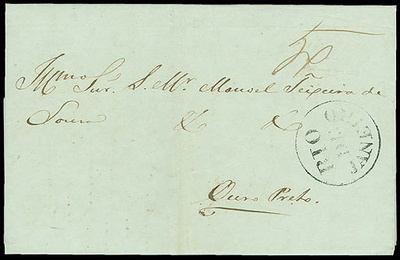 Illmo Snr. S. Mr. Manoel Teixeira de
Souza
& &
Ouro Preto.
RIO DE JANEIRO